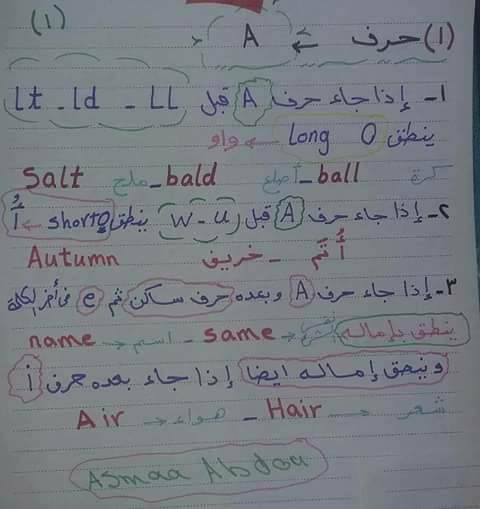 (١)
(١) حرف ← A
١- إذا جاء حرف A قبل Lt - Ld - LL
ينطق Long O ← واو
كرة ball - أصلع bald - ملح Salt
٢- إذا جاء حرف A قبل (w - u) ينطق short o ← أُ
أُتَم - خريف Autumn
٣- إذا جاء حرف A وبعده حرف ساكن ثم e في آخر الكلمة
ينطق بإماله ← same - اسم ← name
وينطق إماله ايضا إذا جاء بعده حرف i
شعر ← Hair - هواء ← Air
Asmaa Abdou